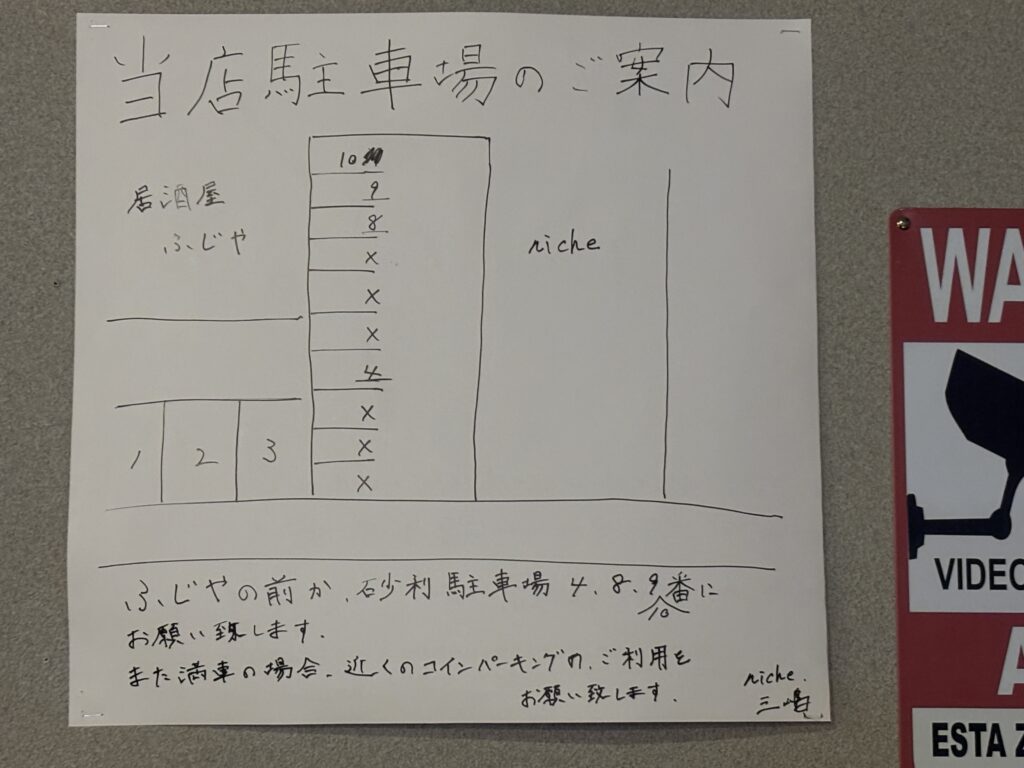 当店駐車場のご案内
居酒屋
ふじや
10
9
8
×
×
×
4
×
×
×
1 2 3
niche
ふじやの前か、砂利駐車場 4、8、9、10番に
お願い致します。
また満車の場合、近くのコインパーキングの、ご利用を
お願い致します。
niche.
三嶋
WA
VIDEO
A
ESTA Z